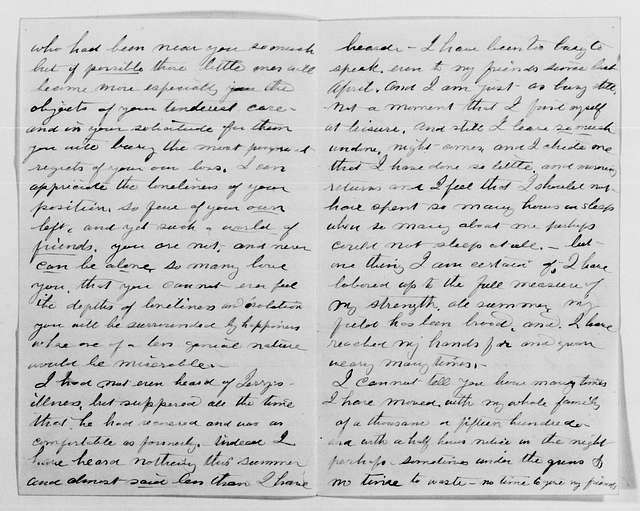 who had been near you so much
but if possible those little ones will
become more especially the
objects of your tenderest care -
and in your solicitude for them
you will bury the most poignant
regrets of your own loss. I can
appreciate the loneliness of your
position, so few of your own
left, and yet such a world of
friends. you are not, and never
can be alone, so many love
you, that you cannot ever feel
the depths of loneliness and isolation
you will be surrounded by happiness
where one of a less genial nature
would be miserable -
I had not even heard of
illness, but supposed all the time
that he had recovered and was as
comfortable as formerly. indeed I
have heard nothing this summer
and almost said less than I have
heard - I have been too busy to
speak, even to my friends since last
April. and I am just as busy still.
not a moment that I find myself
at leisure. and still I leave so much
undone, night comes, and I chide me
that I have done so little, and morning
returns and I feel that I should not
have spent so many hours in sleep
when so many about me perhaps
could not sleep at all. - but
one thing I am certain of, I have
labored up to the full measure of
my strength, all summer, my
field has been broad, and I have
reached my hands for and grown
weary many times. -
I cannot tell you how many times
I have moved, with my whole family
of a thousand or fifteen hundred
and with a half hours notice in the night
perhaps - sometimes under the guns &
no time to waste - no time to my friends